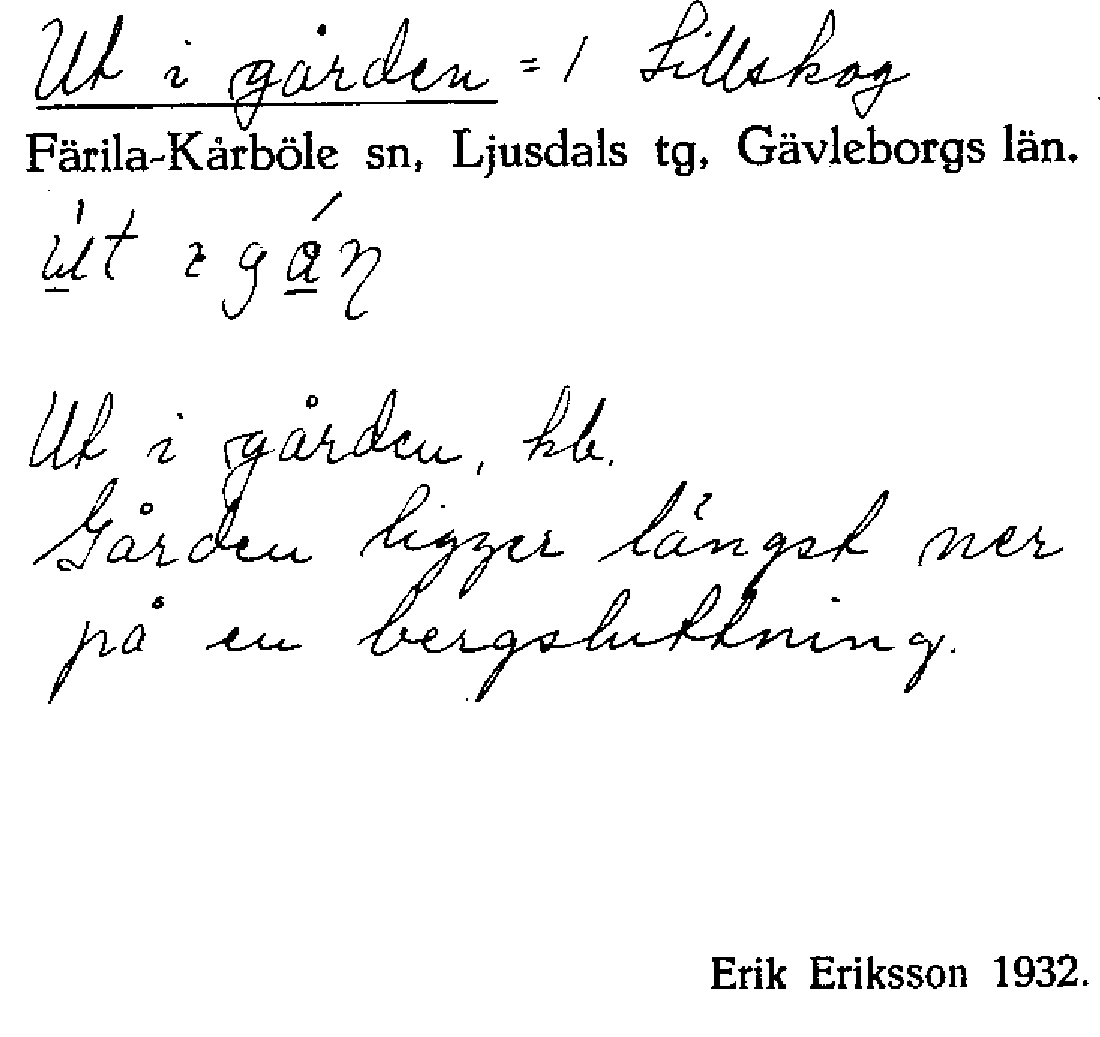 Ut i gården = 1 Lillskog
Färila-Kårböle sn, Ljusdals tg, Gävleborgs län.
út ɩ gáη
Ut i gården, hb.
Gården ligger längst ner
på en bergsluttning.
Erik Eriksson 1932.